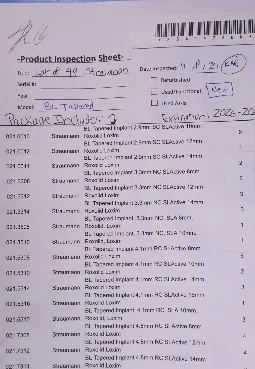 -Product Inspection Sheet-
Date Inspected: 11
Title: Lot of 49 Straumann
Serial #:
Refurbished
Used/Functional New
Year:
Used As-Is
Model: BL Tapered
Package Includes:
Expiration: 2026-202
BL Tapered Implant 2.9mm SC SLActive 10mm
021.0010 Straumann Roxolid Loxim 6
BL Tapered Implant 2.9mm SC SLActive 12mm
021.0012 Straumann Roxolid Loxim 1
BL Tapered Implant 2.9mm SC SLActive 14mm
021.0014 Straumann Roxolid Loxim 2
BL Tapered Implant 3.3mm NC SLActive 8mm
021.3308 Straumann Roxolid Loxim 6
BL Tapered Implant 3.3mm NC SLActive 12mm
021.3312 Straumann Roxolid Loxim 3
BL Tapered Implant 3.3mm NC SLActive 14mm
021.3314 Straumann Roxolid Loxim 3
BL Tapered Implant, 3.3mm NC, SLA 8mm,
Straumann Roxolid, Loxim 1
BL Tapered Implant, 3.3mm NC, SLA 10mm,
Straumann Roxolid, Loxim 1
BL Tapered Implant 4.1mm RC SLActive 8mm
021.5308 Straumann Roxolid Loxim
BL Tapered Implant 4.1mm RC SLActive 10mm
021.5310 Straumann Roxolid Loxim 2
BL Tapered Implant 4.1mm RC SLActive 14mm
021.5314 Straumann Roxolid Loxim 3
BL Tapered Implant 4.1mm RC SLActive 16mm
021.5316 Straumann Roxolid Loxim 1
BL Tapered Implant, 4.1mm RC, SLA 10mm,
Straumann Roxolid, Loxim 3
BL Tapered Implant 4.8mm RC SLActive 8mm
021.7308 Straumann Roxolid Loxim 4
BL Tapered Implant 4.8mm RC SLActive 12mm
021.7312 Straumann Roxolid Loxim 4
BL Tapered Implant 4.8mm RC SLActive 14mm
021.7314 Straumann Roxolid Loxim